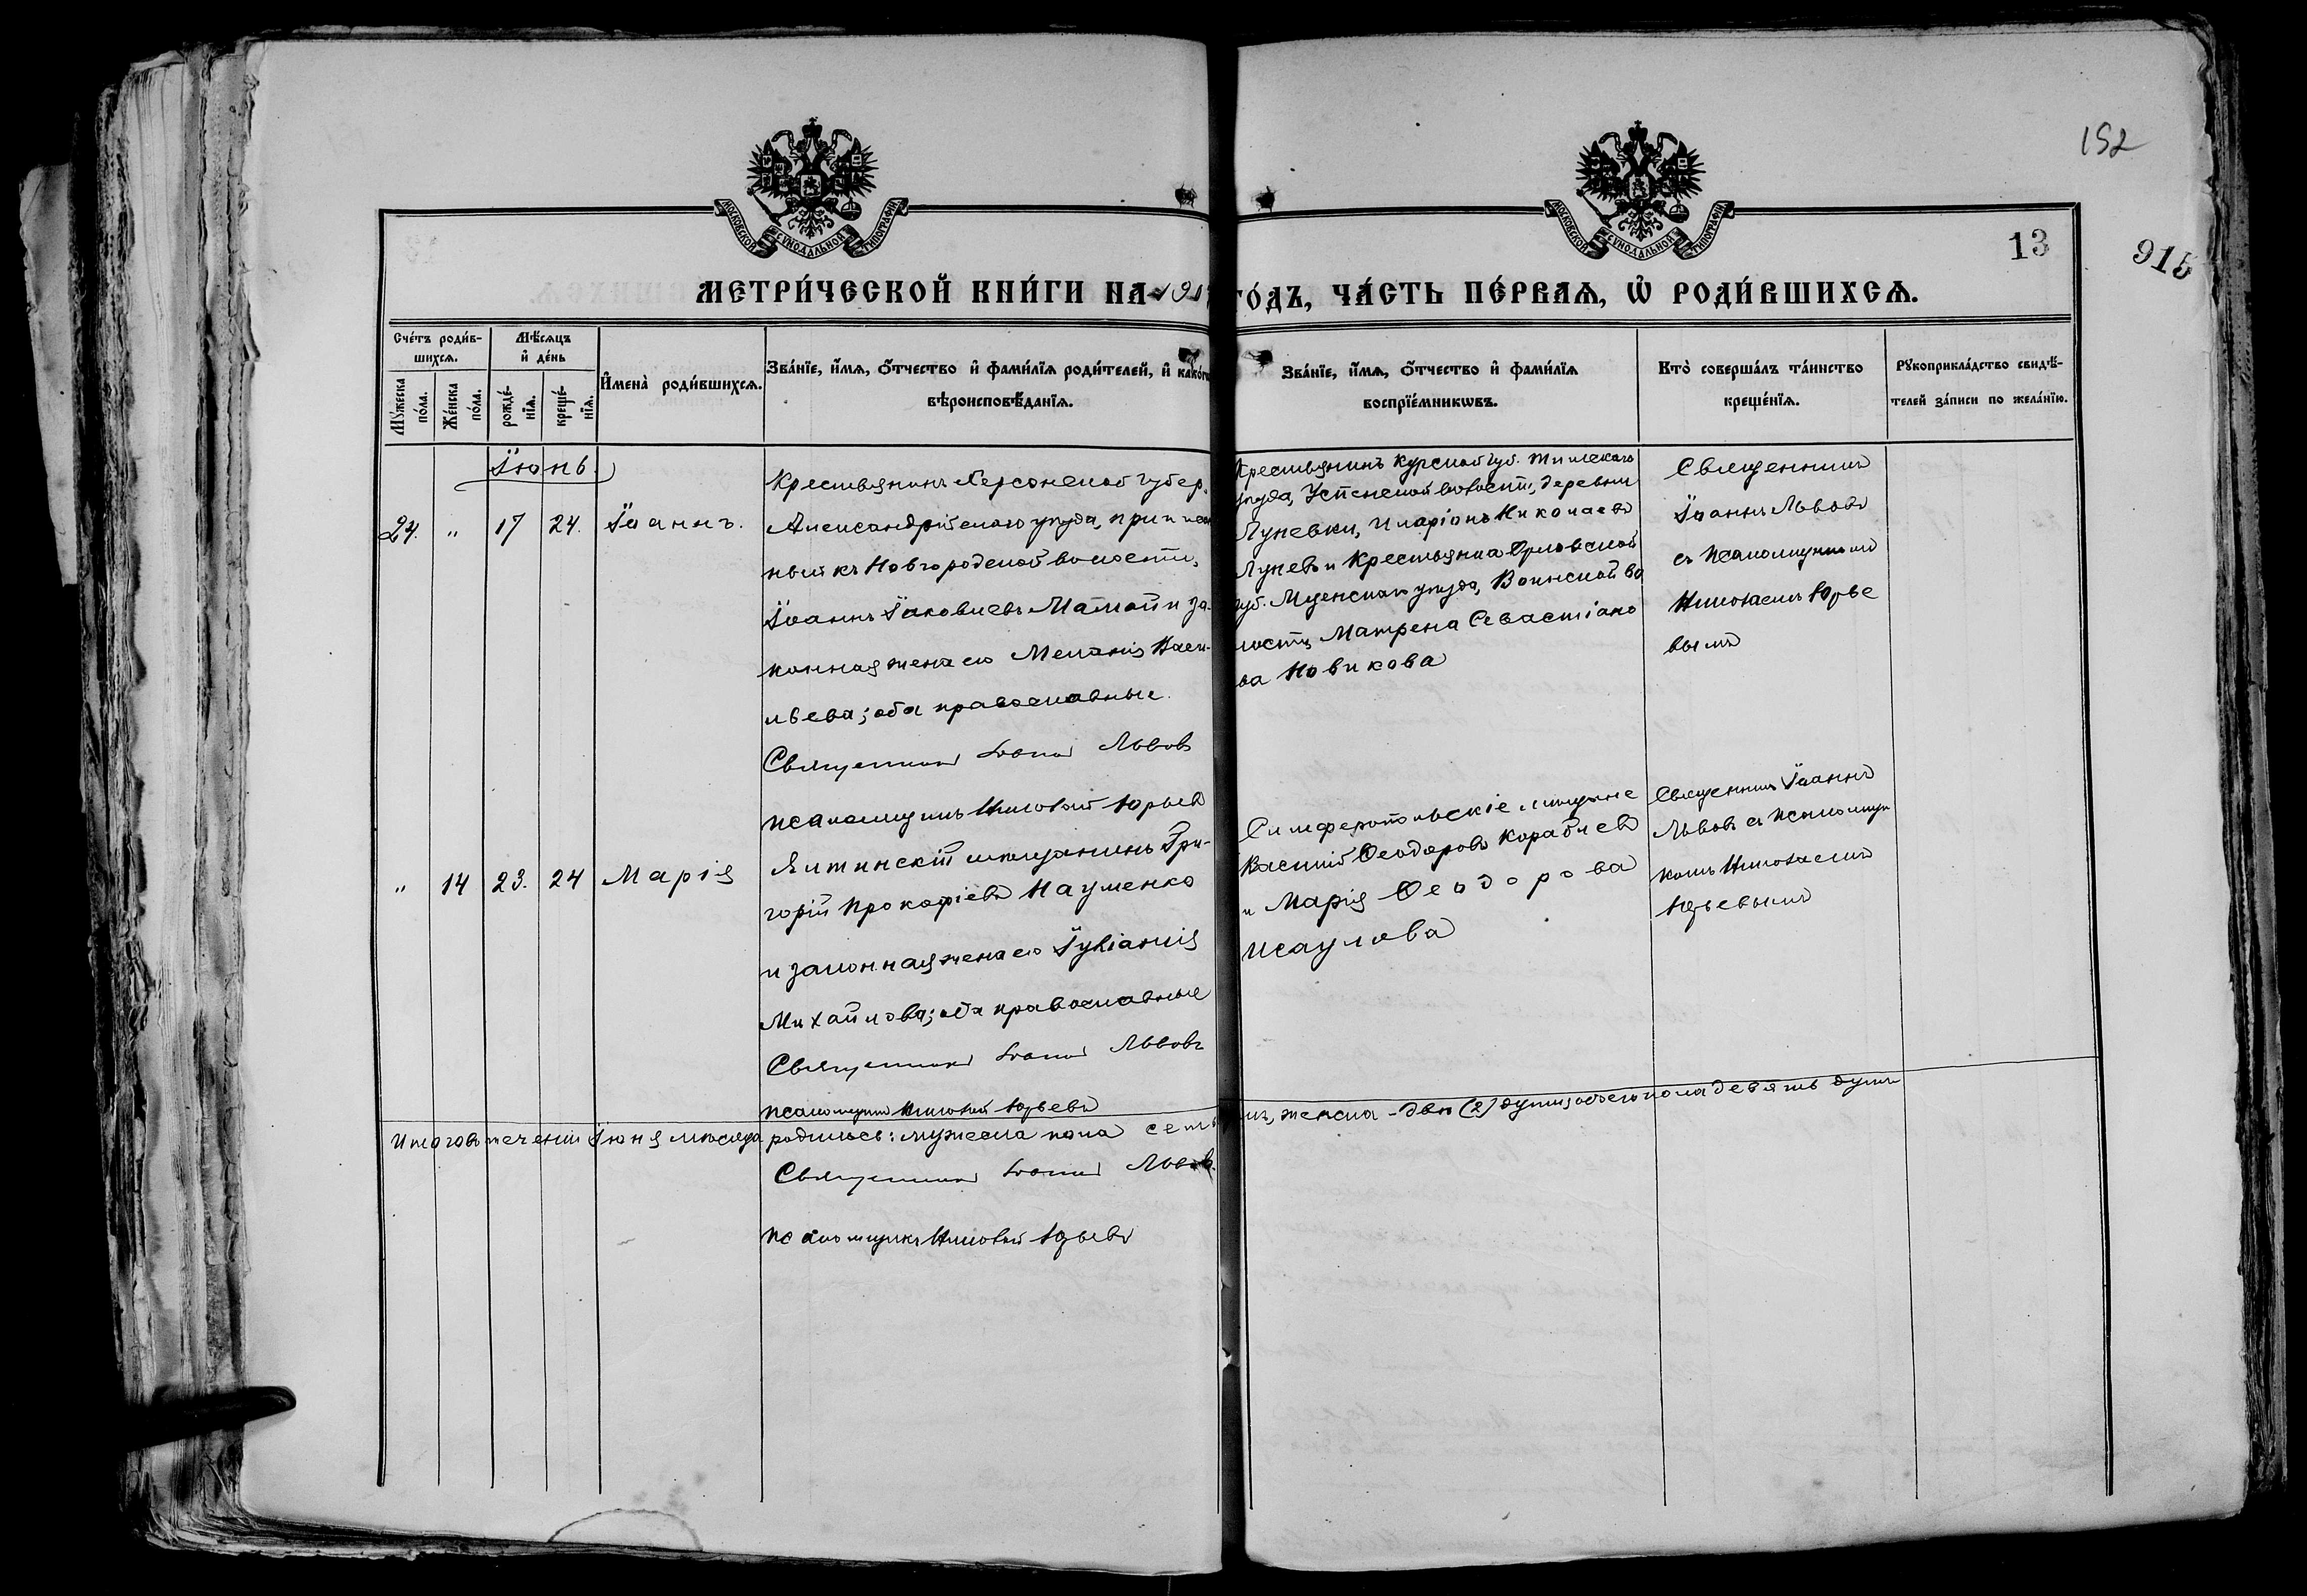 152
МОСКОВСКОЙ СѴНОДАЛЬНОЙ ТИПОГРАФІИ
МОСКОВСКОЙ СѴНОДАЛЬНОЙ ТИПОГРАФІИ
13
915
МЕТРИ́ЧЕСКОЙ КНИ́ГИ НА 191
ГО́ДЪ, ЧА́СТЬ ПЕ́РВАѦ, Ѡ҆ РОДИ́ВШИХСѦ.
Сче́тъ роди́в-
шихсѧ.
Мꙋ́жеска
по́ла.
Же́нска
по́ла.
Мѣ́сѧцъ
и҆ де́нь
рожде́-
нїѧ.
креще́-
нїѧ.
И҆мена̀ роди́вшихсѧ.
Зва́нїе, и҆́мѧ, ѻ҆́тчество и҆ фами́лїѧ роди́телей, и҆ како́гѡ
вѣроисповѣ́данїѧ.
Зва́нїе, и҆́мѧ, ѻ҆́тчество и҆ фами́лїѧ
воспрїе́мникѡвъ.
Кто̀ соверша́лъ та́инство
креще́нїѧ.
Рꙋкоприкла́дство свидѣ́-
телей за́писи по жела́нїю.
Іюнь.
24. " 17 24. Іоаннъ.
Крестьянинъ Херсонской губер.
Александрійскаго уѣзда, приписан
ный къ Новгородской волости,
Іоаннъ Іаковлевъ Мамай и за-
конная жена его Меланія Васи-
льева; оба православные.
Священникъ Іоаннъ Львовъ
псаломщикъ Николай Юрьевъ
Крестьянинъ Курской губ. Тимскаго
уѣзда, Успенской волости, деревни
Луневки, Иларіонъ Николаевъ
Луневъ и Крестьянка Орловской
губ. Мценскаго уѣзда, Воинской во
лости, Матрена Севастіано
ва Новикова
Священникъ
Іоаннъ Львовъ
съ псаломщикомъ
Николаемъ Юрье
вымъ
" 14 23. 24 Марія
Ялтинскій мѣщанинъ Гри-
горій Прокофіевъ Науменко
и законная жена его Іуліанія
Михайлова; оба православные
Священникъ Іоаннъ Львовъ
псаломщикъ Николай Юрьевъ
Симферопольскіе мѣщане
Василій Ѳеодоровъ Корабчев
и Марія Ѳеодорова
Исаулова
Священникъ Іоаннъ
Львовъ съ псаломщи
комъ Николаемъ
Юрьевымъ
Итого въ теченіи Іюня мѣсяца родилось: мужеска пола семь
женска - двѣ (2) души, обоего пола девять душъ
Священникъ Іоаннъ Львовъ.
псаломщикъ Николай Юрьевъ